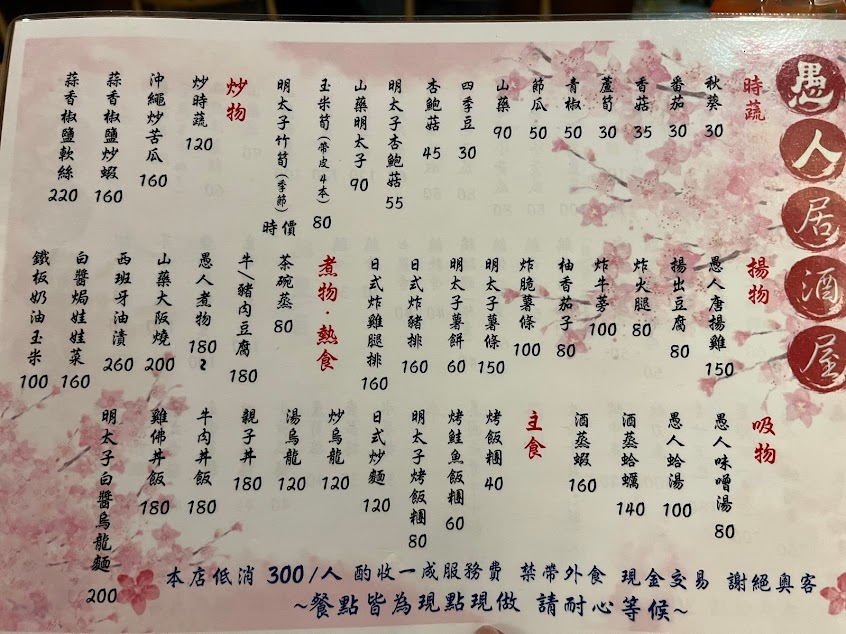 愚人居酒屋
時蔬
秋葵 30
番茄 30
香菇 35
蘆筍 30
青椒 50
節瓜 50
山藥 90
四季豆 30
杏鮑菇 45
明太子杏鮑菇 55
山藥明太子 90
玉米筍(帶皮4本) 80
明太子竹筍(季節) 時價
炒物
炒時蔬 120
沖繩炒苦瓜 160
蒜香椒鹽炒蝦 160
蒜香椒鹽軟絲 220
揚物
愚人唐揚雞 150
揚出豆腐 80
炸火腿 80
炸牛蒡 100
柚香茄子 80
炸脆薯條 100
明太子薯條 150
明太子薯餅 60
日式炸豬排 160
日式炸雞腿排 160
煮物·熱食
茶碗蒸 80
牛/豬肉豆腐 180
愚人煮物 180~
山藥大阪燒 200
西班牙油漬 260
白醬焗娃娃菜 160
鐵板奶油玉米 100
吸物
愚人味噌湯 80
愚人蛤湯 100
酒蒸蛤蠣 140
酒蒸蝦 160
主食
烤飯糰 40
烤鮭魚飯糰 60
明太子烤飯糰 80
日式炒麵 120
炒烏龍 120
湯烏龍 120
親子丼 180
牛肉丼飯 180
雞佛丼飯 180
明太子白醬烏龍麵 200
本店低消 300/人 酌收一成服務費 禁帶外食 現金交易 謝絕奧客
~餐點皆為現點現做 請耐心等候~